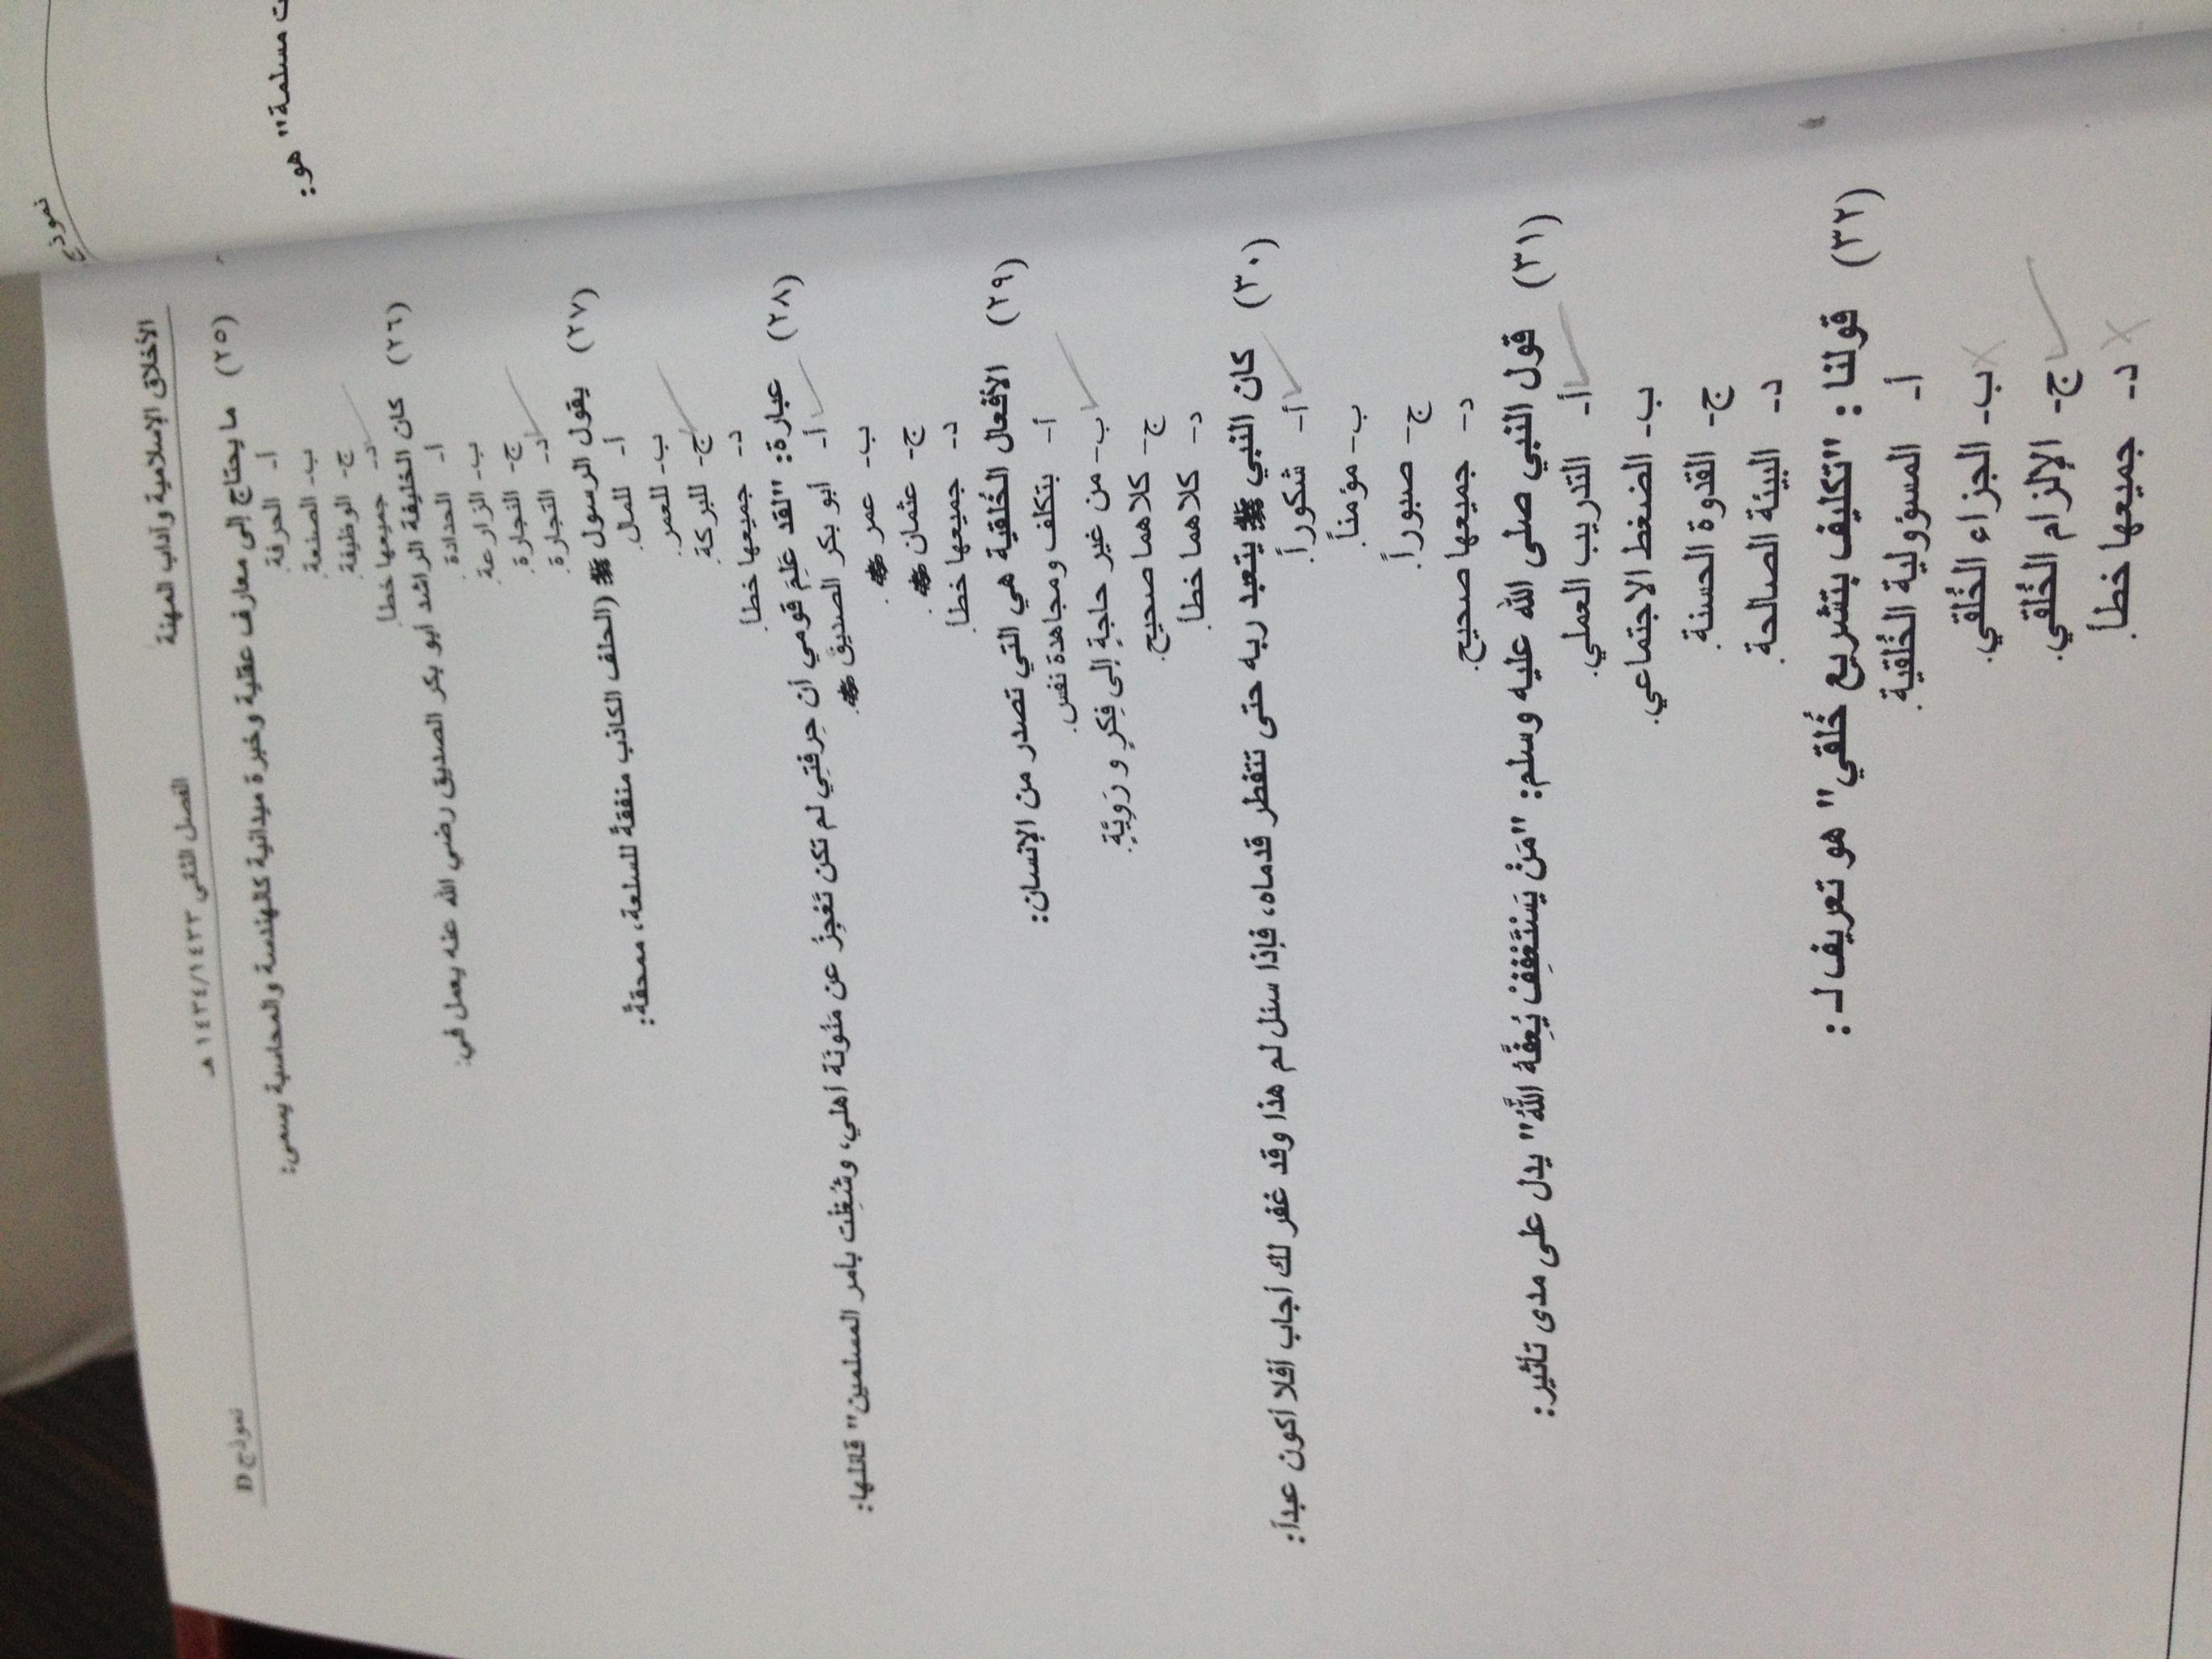 الأخلاق الإسلامية وآداب المهنة الفصل الثاني ١٤٣٤/١٤٣٣ هـ نموذج D
(٢٥) ما يحتاج إلى معارف عقلية وخبرة ميدانية كالهندسة والمحاسبة يسمى:
أ- الحرفة.
ب- الصنعة.
ج- الوظيفة.
د- جميعها خطأ.
(٢٦) كان الخليفة الراشد أبو بكر الصديق رضي الله عنه يعمل في:
أ- الحدادة.
ب- الزراعة.
ج- النجارة.
د- التجارة.
(٢٧) يقول الرسول ﷺ (الحلف الكاذب منفقةٌ للسلعة، ممحقةٌ:
أ- للمال.
ب- للعمر.
ج- للبركة.
د- جميعها خطأ.
(٢٨) عبارة: "لقد عَلِمَ قومي أن حِرفتي لم تكن تَعْجِزُ عن مَئونَة أهلي، وشُغِلْت بأمر المسلمين" قائلها:
أ- أبو بكر الصديق.
ب- عمر.
ج- عثمان.
د- جميعها خطأ.
(٢٩) الأفعال الخُلقية هي التي تصدر من الإنسان:
أ- بتكلف ومجاهدة نفس.
ب- من غير حاجةٍ إلى فِكرٍ و رَوِيَّةٍ.
ج- كلاهما صحيح.
د- كلاهما خطأ.
(٣٠) كان النبي ﷺ يتعبد ربه حتى تتفطر قدماه، فإذا سئل لم هذا وقد غفر لك أجاب أفلا أكون عبداً:
أ- شكوراً.
ب- مؤمناً.
ج- صبوراً.
د- جميعها صحيح.
(٣١) قول النبي صلى الله عليه وسلم: "مَنْ يَسْتَعْفِفْ يُعِفَّهُ اللَّهُ" يدل على مدى تأثير:
أ- التدريب العملي.
ب- الضغط الاجتماعي.
ج- القدوة الحسنة.
د- البيئة الصالحة.
(٣٢) قولنا : "تكليف بتشريع خُلقي" هو تعريف لـ :
أ- المسؤولية الخُلقية.
ب- الجزاء الخُلقي.
ج- الإلزام الخُلقي.
د- جميعها خطأ.
نموذج
مسلمة" هو: